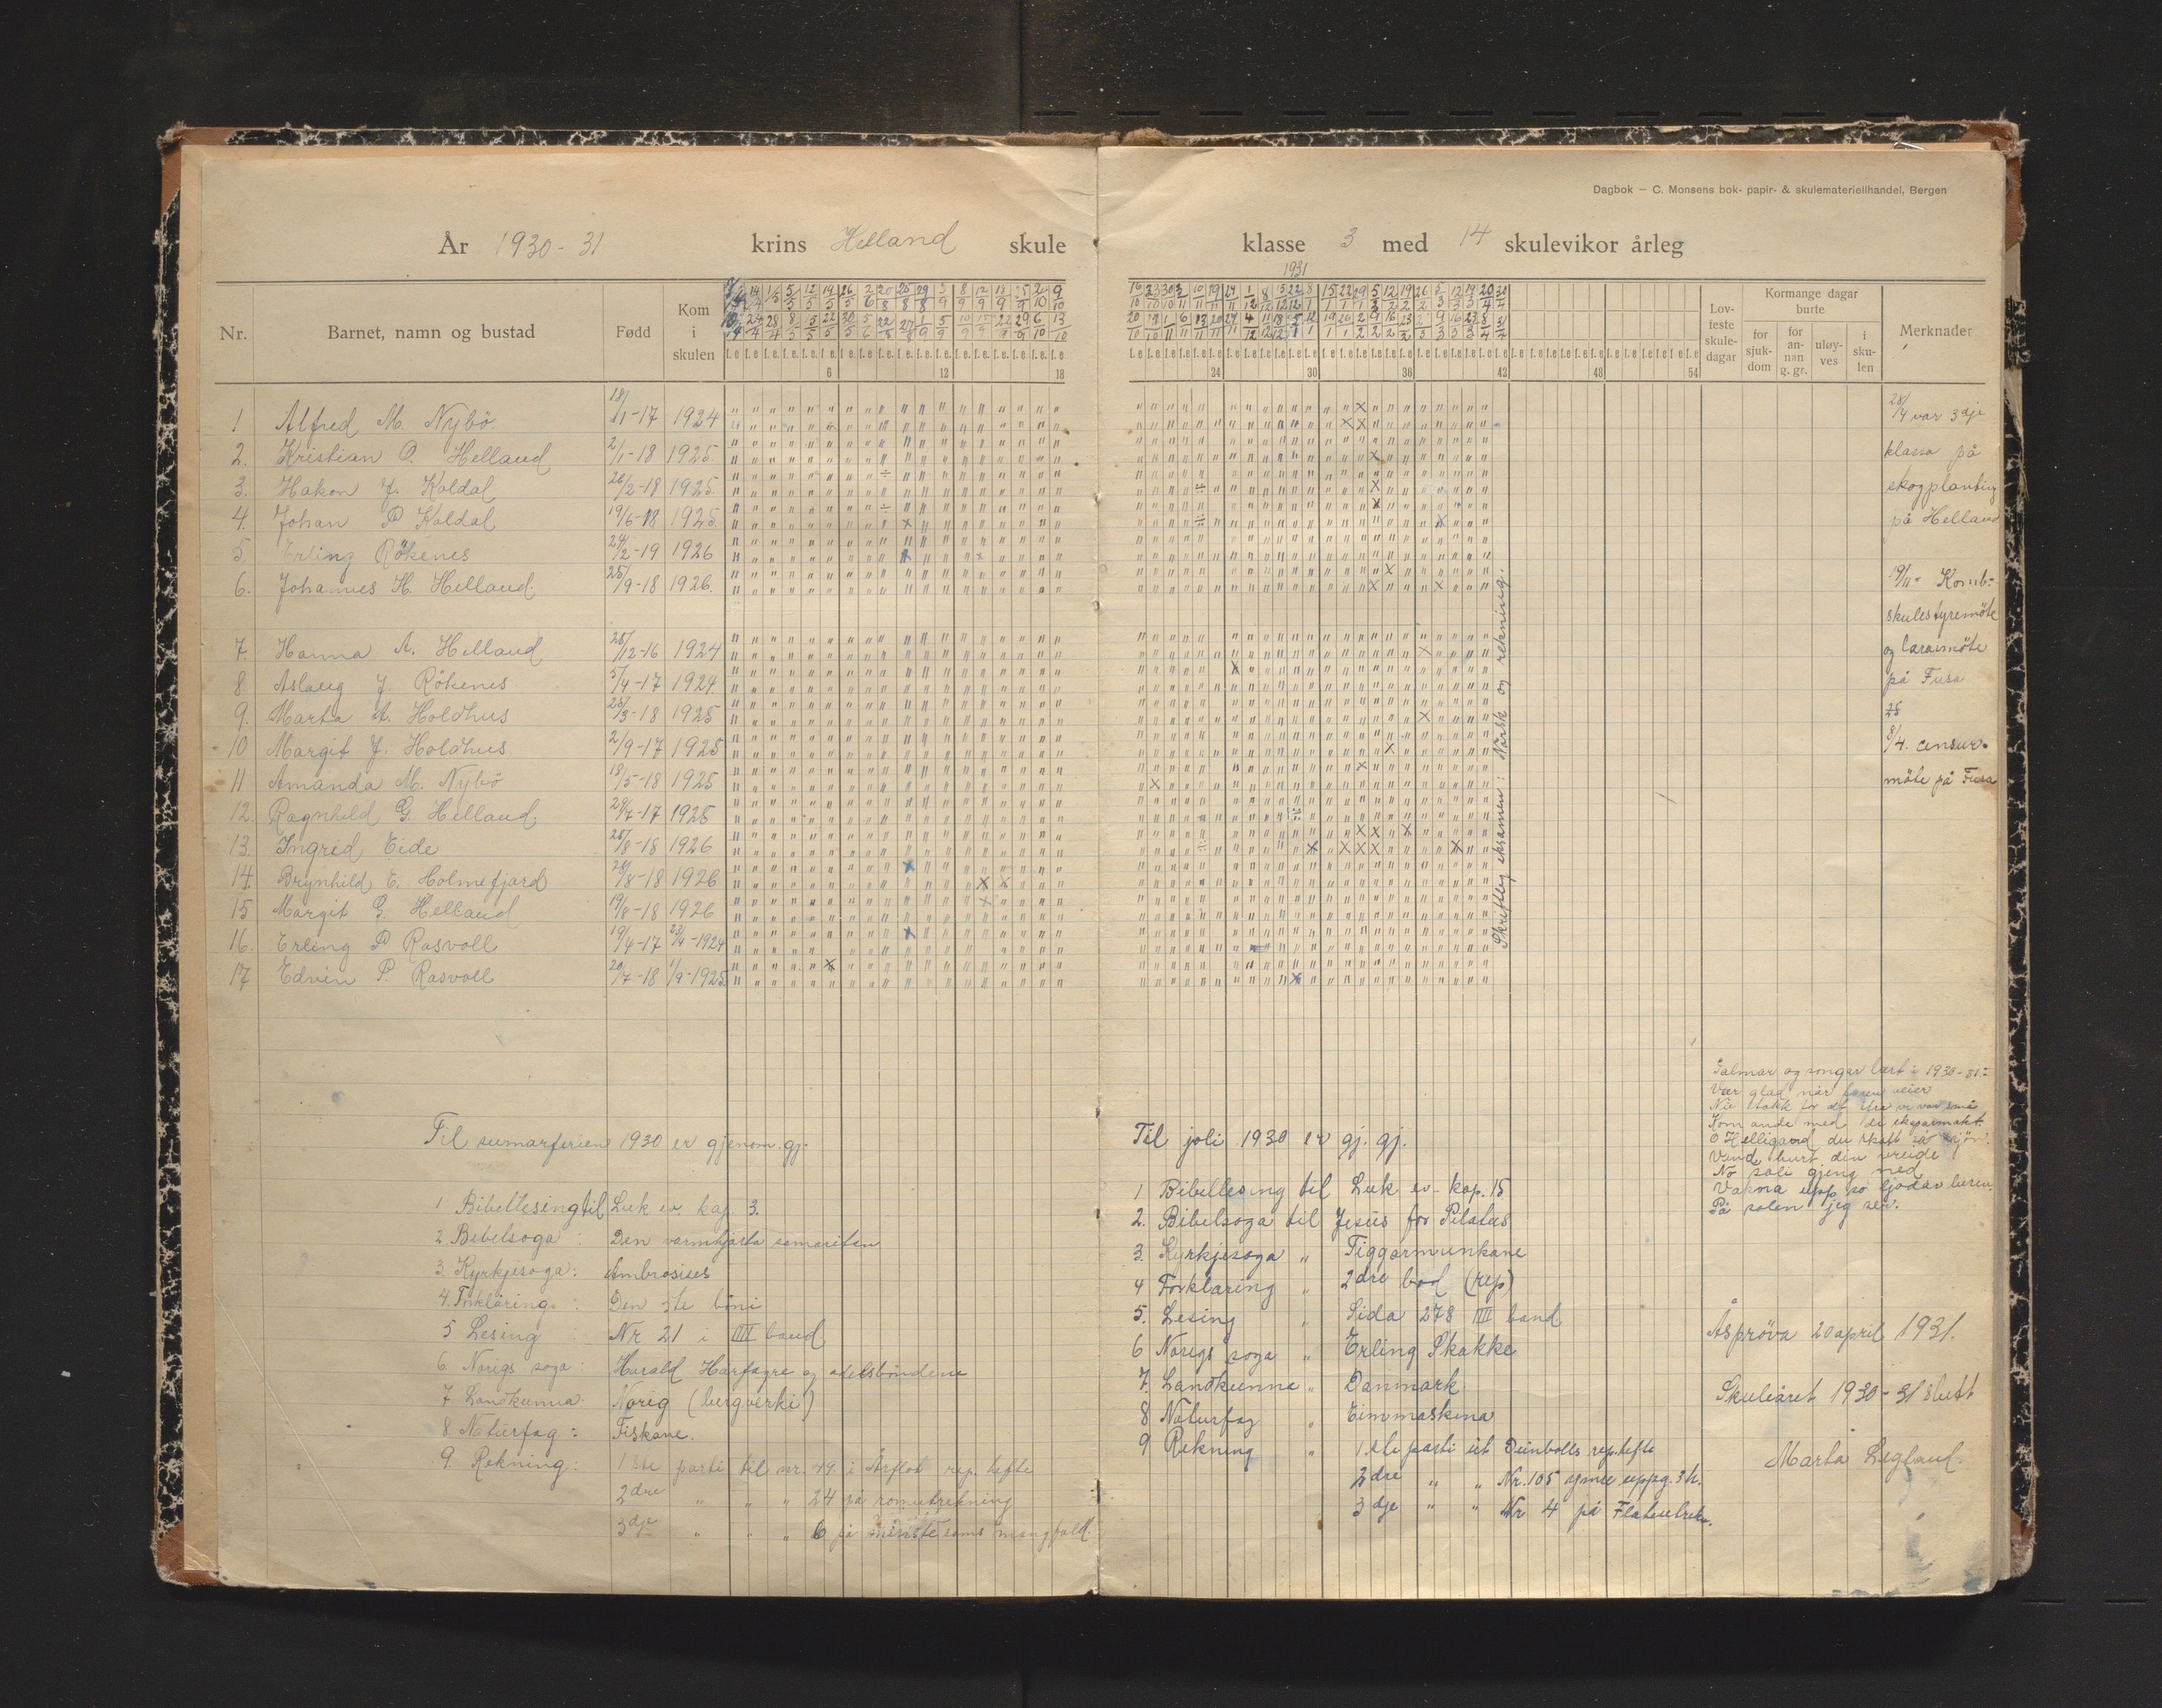 Dagbok — C. Monsens bok- papir- & skulemateriellhandel, Bergen
År 1930-31 krins Helland skule
klasse 3 med 14 skulevikor årleg
1931
Nr. Barnet, namn og bustad Fødd Kom i skulen
Lovfeste skuledagar
Kormange dagar burte
for sjukdom for annan g. gr. uløyves i skulen
Merknader
6 12 18
24 30 36 42 48 54
1 Alfred M. Nybö 18/1-17 1924
2. Kristian O. Helland 2/1-18 1925.
3. Hakon J. Koldal 26/2-18 1925.
4. Johan P Koldal 19/6-18 1925.
5. Erling Rökenes 24/2-19 1926
6. Johannes H. Helland. 25/9-18 1926.
7. Hanna A. Helland 25/12-16 1924
8 Aslaug J. Rökenes 5/4-17 1924.
9. Marta A. Holdhus 25/3-18 1925
10 Margit J. Holdhus 2/9-17 1925
11 Amanda M. Nybö 18/5-18 1925
12. Ragnhild G. Helland. 29/7-17 1925
13. Ingrid Eide 25/8-18 1926
14. Brynhild E. Holmefjord 28/8-18 1926
15 Margit G. Helland 19/8-18 1926
16. Erling P Rasvoll 19/4-17 23/4-1924
17 Edvin P. Rasvoll 20/7-18 1/9-1925.
Skriftleg eksamen: Norsk og rekning.
28/4 var 3dje
klassa på
skogplanting
på Helland
19/11- Komb-
skulestyremöte
og lærarmöte
på Fusa
8/4. censur-
möte på Fusa
Til sumarferien 1930 er gjenom. gj.
1 Bibellesing til Luk ev. kap. 3.
2 Bibelsoga : Den varmhjarta samaritan
3. Kyrkjesoga: Ambrosius
4. Forklåring. : Den 5te böni
5. Lesing : Nr. 21 i IIII band
6. Noregs soga : Harald Hårfagre og adelsbondene
7 Landkunna: Norig (bergverki)
8. Naturfag : Fiskane.
9. Rekning: 1ste parti til nr. 49. i Årflot rep. hefte
2dre " " " 24 på romutrekning
3dje " " " 6 på minste sams mangfald.
Til joli 1930 er gj. gj.
1 Bibellesing til Luk ev. kap. 15
2. Bibelsoga til Jesus for Pilatus
3. Kyrkjesoga " Tiggarmunkane
4 Forklaring " 2dre bod (rep)
5. Lesing " Sida 278 IIII band
6 Noregs soga " Erling Skakke
7. Landkunne " Danmark
8 Naturfag " Eimmaskina
9 Rekning " 1ste parti ut Dunbolts rep. hefte
2dre " " Nr. 105 ymse uppg. 3 h.
3dje " " Nr 4 på Flateutrekn.
Salmar og songar lært i 1930-31:
Vær glad når faren veier
No takk for alt ifra vi var små
Kom ande med ditt skaparmakt.
O Helligaand du skatt så skjön.
Vend burt din vreide
No soli gjeng ned
Vakna upp so ljodar luren.
På solen jeg ser.
Årsprøva 20 april 1931.
Skuleåret 1930-31 slutt
Marta Legland.